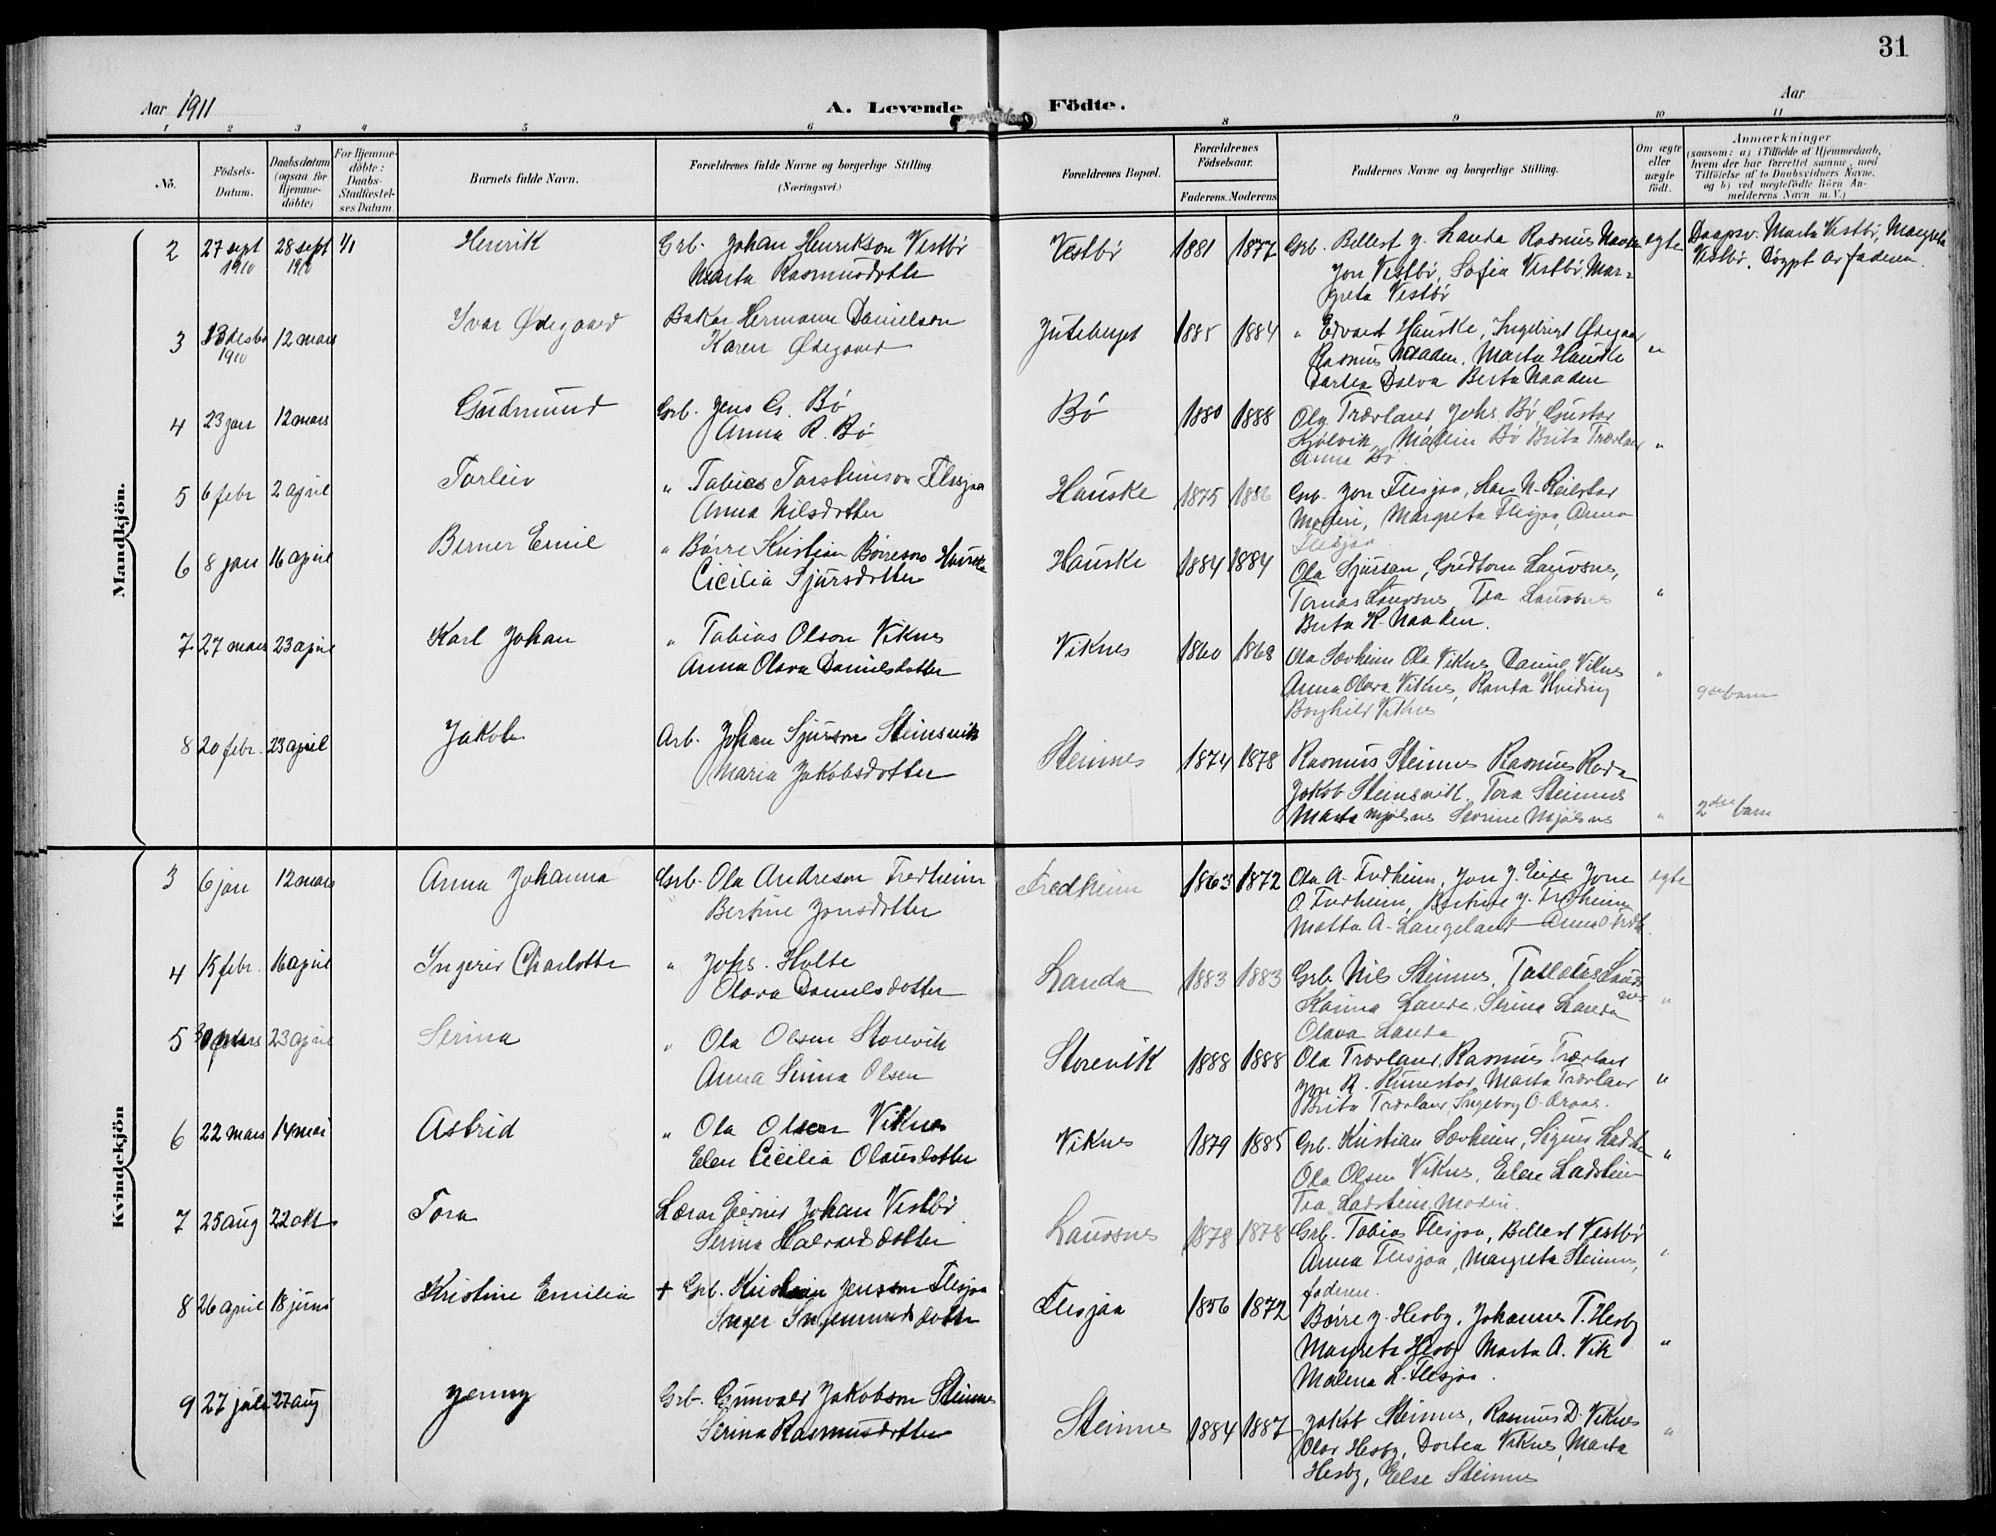 31
Aar 1911
A. Levende Födte.
Aar
1 2 3 4 5 6 8 9 10 11
No.
Födsels-Datum.
Daabsdatum (ogsaa for Hjemme-döbte)
For Hjemme-döbte: Daabs-Stadfæstel-ses Datum
Barnets fulde Navn.
Forældrenes fulde Navne og borgerlige Stilling
(Næringsvei.)
Forældrenes Bopæl.
Forældrenes Födselsaar.
Faderens. Moderens
Faddernes Navne og borgerlige Stilling.
Om ægte eller uægte födt.
Anmærkninger
(saasom: a) i Tilfælde af Hjemmedaab, hvem der har forrettet samme, med Tilföielse af to Daabsvidners Navne, og b) ved uægtefödte Börn An-melderens Navn m.V.)
Mandkjön.
2 27 sept 1910 28 sept 1910 1/1 Henrik Grb. Johan Henrikson Vestbø
Marta Rasmusdotter
Vestbø 1881 1877 Grb. Bellest J. Landa Rasmus Naaden egte
Jon Vestbø, Sofia Vestbø, Mar-
greta Vestbø
Daapsv. Marta Vestbø, Margreta
Vestbø. Døypt av faderen.
3 13 desbr 1910 12 mars Ivar Ødegaard Bakar Hermann Danielson
Karen Ødegaard
Juteberget 1885 1884 " Edvard Hauske, Ingebrigt Ødegaar
Rasmus Naaden, Marta Hauske "
Dortea Dalva Berta Naaden
4 23 jan 12 mars Gudmund Grb. Jens G. Bø
Anna R. Bø
Bø 1880 1888 Ola Trævland Johs Bø Gustav
Kjølvik, Malin Bø Brita Trævlan "
Anna Bø
5 6 febr 2 april Torleiv " Tobias Torsteinson Flesjaa
Anna Nilsdotter
Hauske 1875 1886 Grb. Jon Flesjaa, Hans N. Reilstad
Moderi, Margreta Flesjaa, Anna
Flesjaa
6 8 jan 16 april Berner Emil " Børre Kristian Børreson Hauske
Cicilia Sjursdotter
Hauske 1884 1884 Ola Sjursan, Gudtorm Lauvsnes,
Tomas Lauvsnes, Tea Lauvsnes "
Berta K. Naaden.
7 27 mars 23 april Karl Johan " Tobias Olson Viknes
Anna Olava Danielsdotter
Viknes 1860 1868 Ola Sævheim Ola Viknes Daniel Viknes
Anna Olava Viknes, Ranta Hviding "
Borghild Viknes
9de barn
8 20 febr. 23 april Jakob Arb. Johan Sjurson Steinsvik
Maria Jakobsdotter
Steinnes 1874 1878 Rasmus Steinnes Rasmus Rada
Jakob Steinsvik. Tora Steinnes
Marta Mjølsnes Serine Mjølsnes "
2det barn
Kvindekjön
3 6 jan 12 mars Anna Johanna Grb. Ola Andreson Fredheim
Bertine Jonsdotter
Fredheim 1863 1872 Ola A. Fredheim, Jon J. Eide Jone egte
O. Fredheim, Bertine J. Fredheim
Matta A. Langeland Anna O Fredh.
4 15 febr. 16 april Ingerid Charlotte " Johs. Holte
Olava Danielsdotter
Landa 1883 1883 Grb. Nils Steinnes, Tolleiv Lauvs
nes
Karina Landa, Serina Landa "
Olava Landa
5 30 mars 23 april Serina " Ola Olsen Storevik
Anna Serina Olsen
Storevik 1888 1888 Ola Trævland, Rasmus Trævland
Jon R. Runestad, Marta Trævland "
Brita Trævland, Ingeborg O. Araas.
6 22 mars 14 mai Astrid " Ola Olsen Viknes
Elen Cicilia Olausdotter
Viknes 1879 1885 Grb. Kristian Sævheim, Sigurd Ladstein "
Ola Olsen Viknes, Elen Ladstein
Tea Ladstein, Moderi.
7 25 aug 22 okt Tora Lærar Eivind Johan Vestbø
Serina Halvardsdotter
Lauvsnes 1878 1878 Grb. Tobias Flesjaa, Bellest Vestbø
Anna Flesjaa, Margreta Steinnes, "
faderen.
8 26 april 18 juni Kristine Emilia + Grb. Kristian Jensson Flesjaa
Inger Ingemundsdotter
Flesjaa 1856 1872 Børre J. Hesby, Johannes T. Hesby
Margreta Hesby Marta A. Vik "
Malena L. Flesjaa.
9 27 juli 27 aug Jenny Grb. Gunvald Jakobson Steinnes
Serina Rasmusdotter
Steinnes 1884 1887 Jakob Steinnes, Rasmus D. Viknes
Olav Hesby, Dortea Viknes, Marta "
Hesby, Else Steinnes